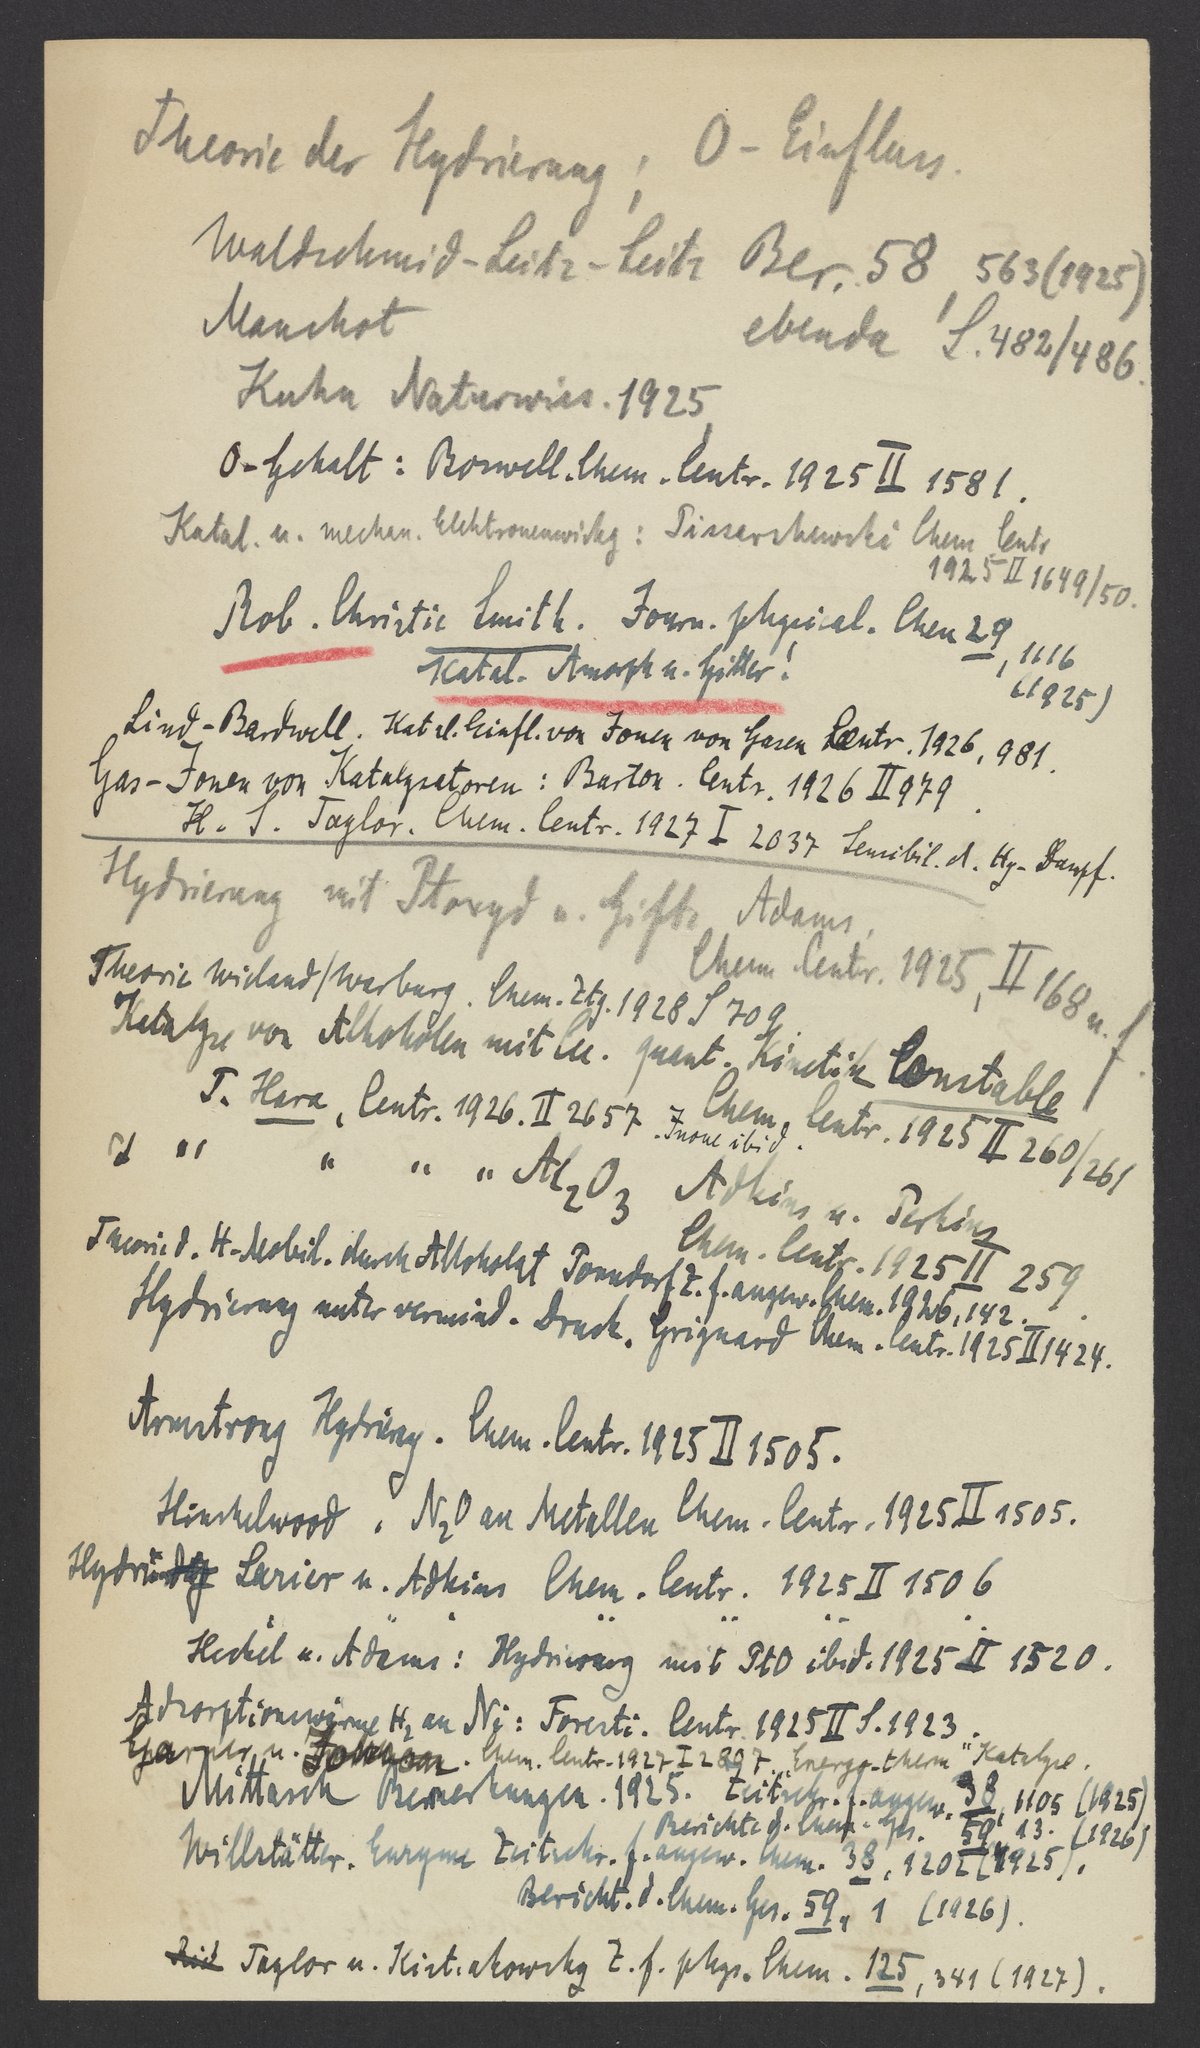 Theorie der Hydrierung; O-Einfluss.
Waldschmid-Leitz-Seitz Ber. 58, 563 (1925)
Manchot ebenda S. 482/486.
Kuhn Naturwiss. 1925,
O-Gehalt: Boswell. Chem. Centr. 1925 II 1581.
Katal. u. mechan. Elektronenwirkg: Pissarshewski Chem Centr
1925 II 1649/50.
Rob. Christie Smith. Journ. physical. Chem 29, 1116
(1925)
Katal. Amorph u. Gitter!
Lind-Bardwell. Katal. Einfl. von Ionen von Gasen Centr. 1926, 981.
Gas-Ionen von Katalysatoren: Burton. Centr. 1926 II 979.
H. S. Taylor. Chem. Centr. 1927 I 2037 Sensibil. d. Hg-Dampf.
Hydrierung mit Ptoxyd u. Gifte Adams,
Chem Centr. 1925, II 168 u. f.
Theorie Wieland/Warburg. Chem. Ztg. 1928 S 709.
Katalyse von Alkoholen mit Cu. quant. Kinetik Constable
Chem. Centr. 1925 II 260/261
T. Hara, Centr. 1926. II 2657. Inoue ibid.
" " " " " Al2O3 Adkins u. Perkins
Chem. Centr. 1925 II 259.
Theorie d. H-Mobil. durch Alkoholat Ponndorf Z. f. angew. Chem. 1926, 142.
Hydrierung unter vermind. Druck. Grignard Chem. Centr. 1925 II 1424.
Armstrong Hydrierg. Chem. Centr. 1925 II 1505.
Hinshelwood. N2O an Metallen Chem. Centr. 1925 II 1505.
Lazier u. Adkins Chem. Centr. 1925 II 1506
Heckel u. Adams: Hydrierung mit PtO ibid. 1925 II 1520.
Adsorptionswärme H2 an Ni: Foresti. Centr. 1925 II S. 1923.
Garner u. Chem. Centr. 1927 I 2897. "Energo-therm" Katalyse.
Mittasch Bemerkungen. 1925. Zeitschr. f. angew. 38, 1105 (1925)
Berichte d. Chem. Ges. 59, 13. (1926)
Willstätter. Enzyme Zeitschr. f. angew. Chem. 38, 1202 (1925).
Bericht. d. Chem. Ges. 59, 1 (1926).
Taylor u. Kistiakowsky Z. f. phys. Chem. 125, 341 (1927).